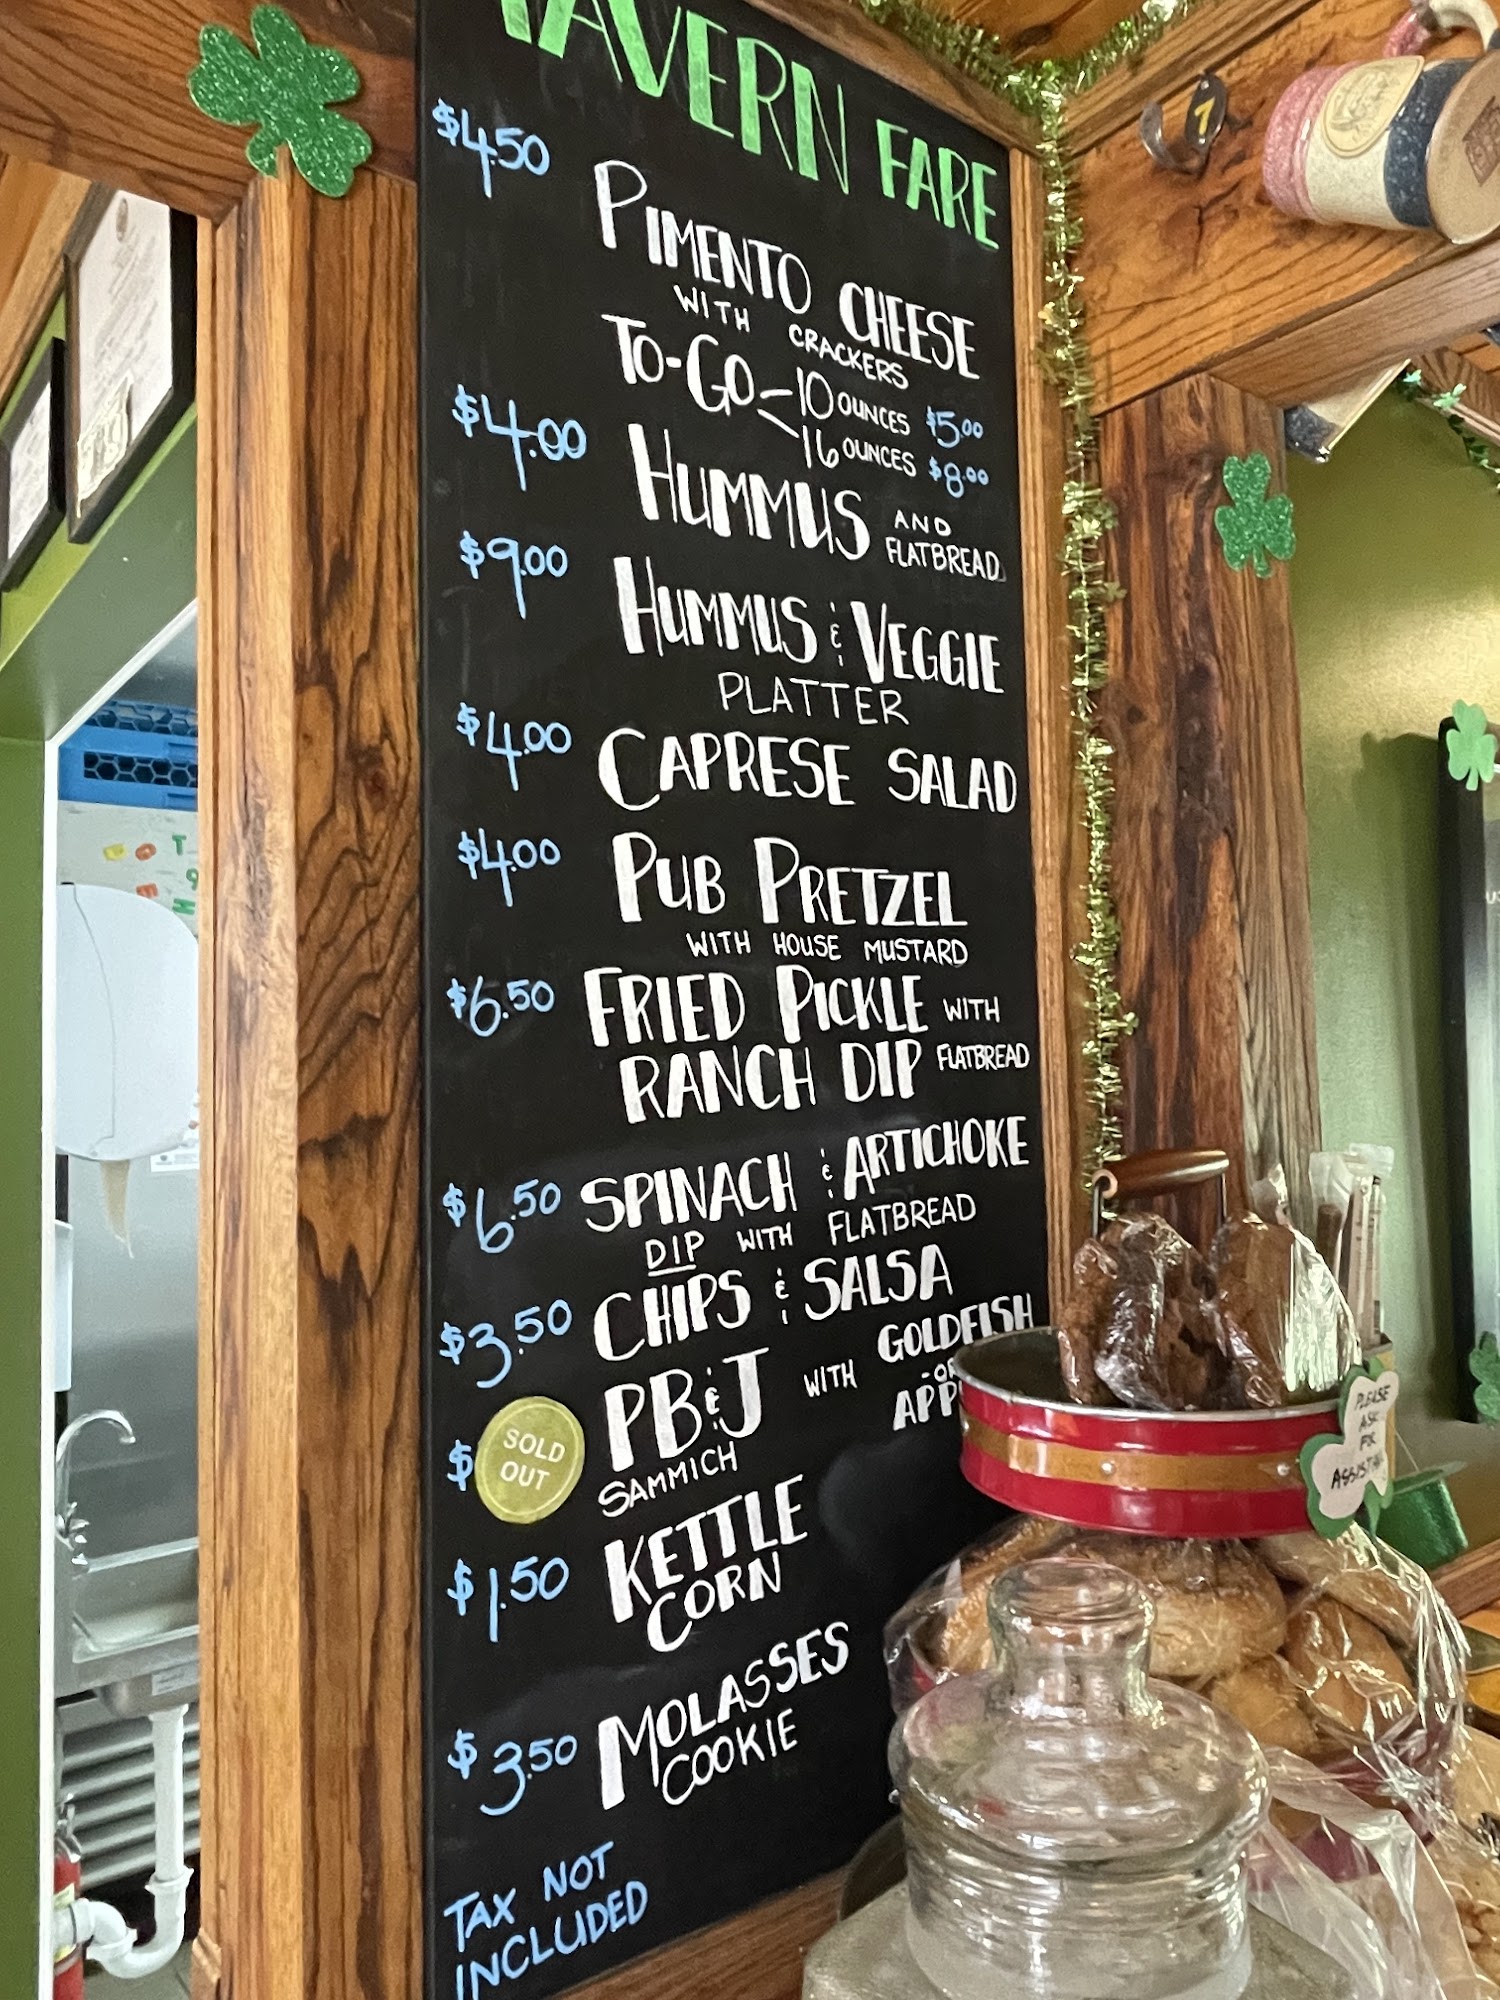 TAVERN FARE
$4.50 PIMENTO CHEESE
WITH CRACKERS
TO-GO - 10 OUNCES $5.00
16 OUNCES $8.00
$4.00 HUMMUS AND
FLATBREAD
$9.00 HUMMUS & VEGGIE
PLATTER
$4.00 CAPRESE SALAD
$4.00 PUB PRETZEL
WITH HOUSE MUSTARD
$6.50 FRIED PICKLE WITH
RANCH DIP FLATBREAD
$6.50 SPINACH & ARTICHOKE
DIP WITH FLATBREAD
$3.50 CHIPS & SALSA
$ SOLD
OUT
PB&J WITH GOLDFISH
-OR
APP
SAMMICH
$1.50 KETTLE
CORN
$3.50 MOLASSES
COOKIE
TAX NOT
INCLUDED
7
PLEASE
ASK
FOR